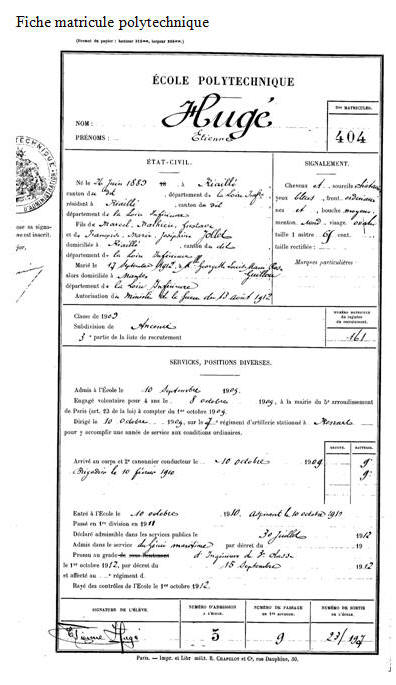 Fiche matricule polytechnique
(Format du papier : hauteur 31⁰ᵐ, largeur 20⁰ᵐ.)
ÉCOLE POLYTECHNIQUE
Nos MATRICULES.
NOM : Hugé
PRÉNOMS : Etienne
404
ÉTAT-CIVIL.
SIGNALEMENT.
Né le 26 Juin 1889 à Riaillé
canton du dit, département de la Loire Infre
résidant à Riaillé, canton du dit
département de la Loire Inférieure
Fils de Marcel, Mathurin, Gustave
et de Françoise, Marie, Joséphine Jollet
domiciliés à Riaillé, canton du dit
département de la Loire Inférieure
Marié le 17 Septembre 1912, à Mlle Georgette Louise Marie
Guillou
alors domiciliée à Nantes
département de la Loire Inférieure
Autorisation du Ministre de la Guerre du 13 août 1912
Cheveux et sourcils châtains
yeux bleus, front ordinaire
nez et, bouche moyenne
menton rond, visage ovale
taille 1 mètre 65 cent.
taille rectifiée :
Marques particulières :
TECHNIQUE
D'ADMINIS
ur sa signa-
ne est inscrit.
jor,
Classe de 1909
Subdivision de Ancenis
3e partie de la liste de recrutement
NUMÉRO MATRICULE
du registre
du recrutement.
161
SERVICES, POSITIONS DIVERSES.
Admis à l'École le 10 Septembre 1909.
Engagé volontaire pour 4 ans le 8 octobre 1909, à la mairie du 5e arrondissement
de Paris (art. 23 de la loi) à compter du 1er octobre 1909.
Dirigé le 10 octobre 1909, sur le 7e régiment d'artillerie stationné à Rennes
pour y accomplir une année de service aux conditions ordinaires.
BATTERIE.
Arrivé au corps et 2e canonnier conducteur le 10 octobre 1909
9e
Brigadier le 10 février 1910
9e
Entré à l'École le 10 octobre 1910. Aspirant le 10 octobre 1911
Passé en 1re division en 1911
Déclaré admissible dans les services publics le 30 Juillet 1912
Admis dans le service du Génie maritime par décret du
Promu au grade de sous-lieutenant d'Ingénieur de 3e classe
le 1er octobre 1912, par décret du 15 Septembre 1912
et affecté au régiment d
Rayé des contrôles de l'École le 1er octobre 1912.
SIGNATURE DE L'ÉLÈVE.
NUMÉRO D'ADMISSION
à l'école.
NUMÉRO DE PASSAGE
en 1re division.
NUMÉRO DE SORTIE
de l'école.
Etienne Hugé
5
9
23/197
Paris. — Imp. et Libr milit. R. CHAPELOT et Cie, rue Dauphine, 30.